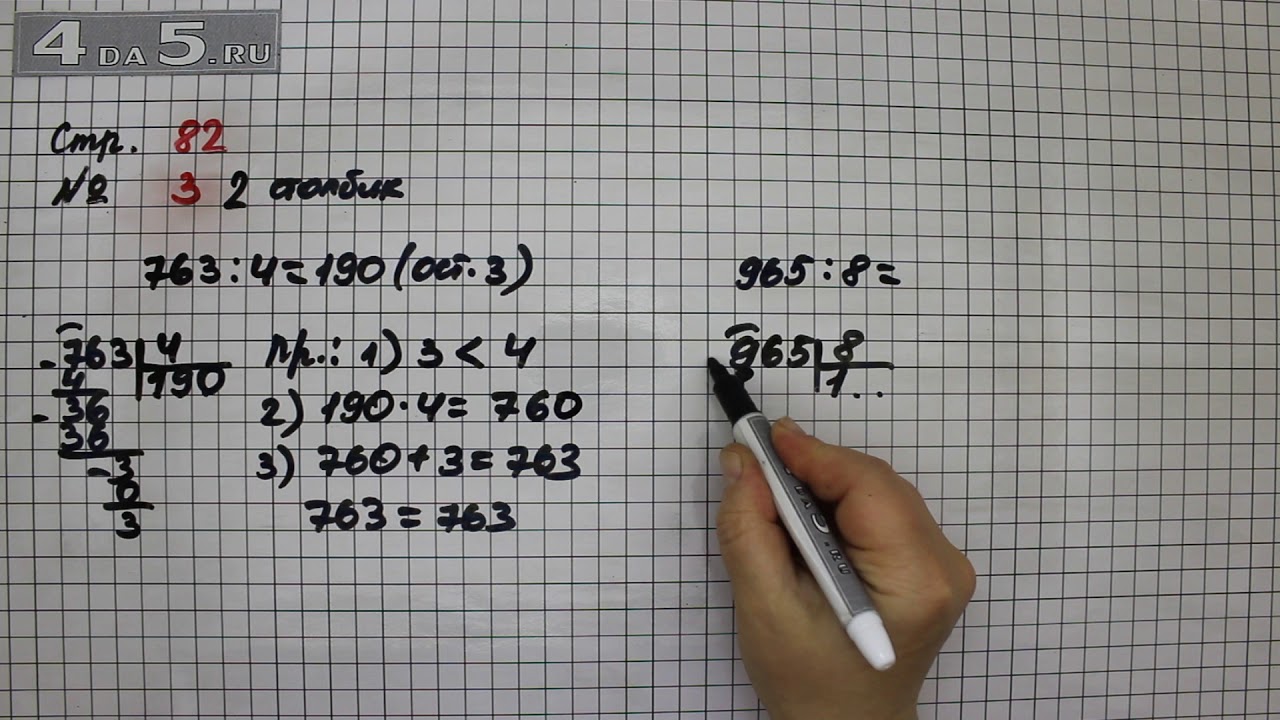 4DA5.RU
Стр. 82
№ 3 2 столбик
763 : 4 = 190 (ост. 3)
- 763 | 4
4 | 190
- 36
36
- 3
0
3
Пр.: 1) 3 < 4
2) 190 · 4 = 760
3) 760 + 3 = 763
763 = 763
965 : 8 =
965 | 8
8 | 1..